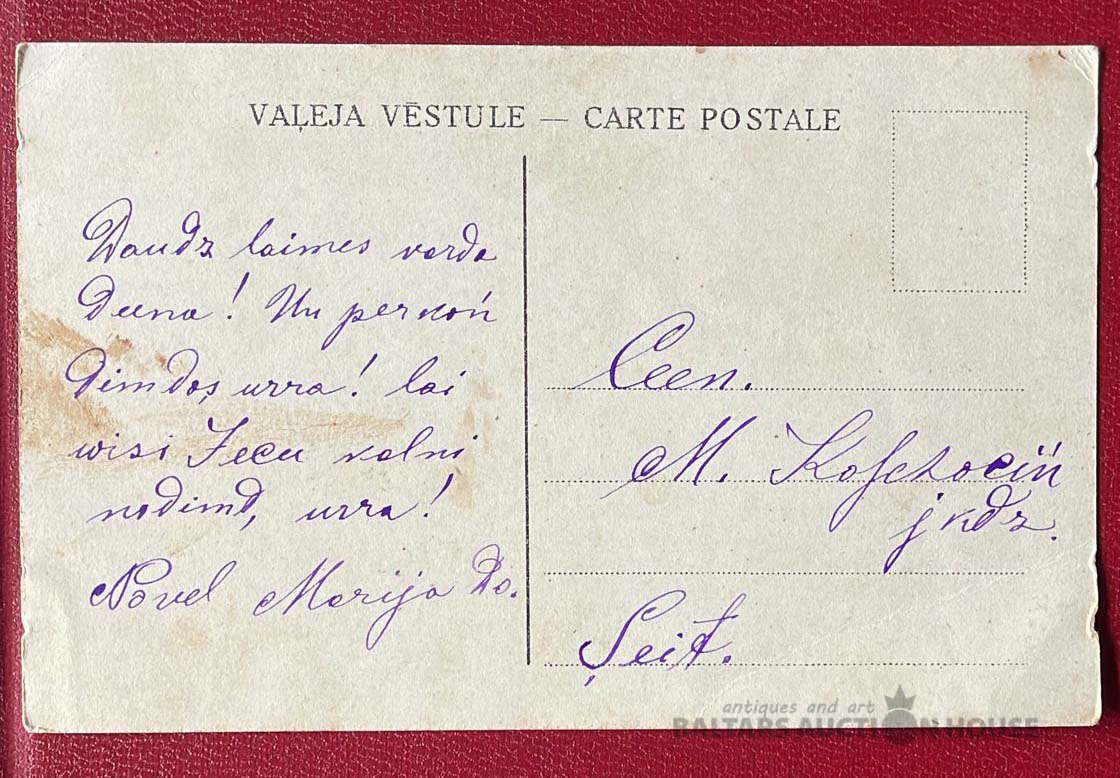 VAĻEJA VĒSTULE — CARTE POSTALE
Daudz laimes varda
Deena! Un perkoń
dimdoș urra! lai
wisi Jecu kalni
nodimd, urra!
Novel Marija Do.
Ceen.
M.
jkdz.
Șeit.
antiques and art
BALTARS AUCTION HOUSE